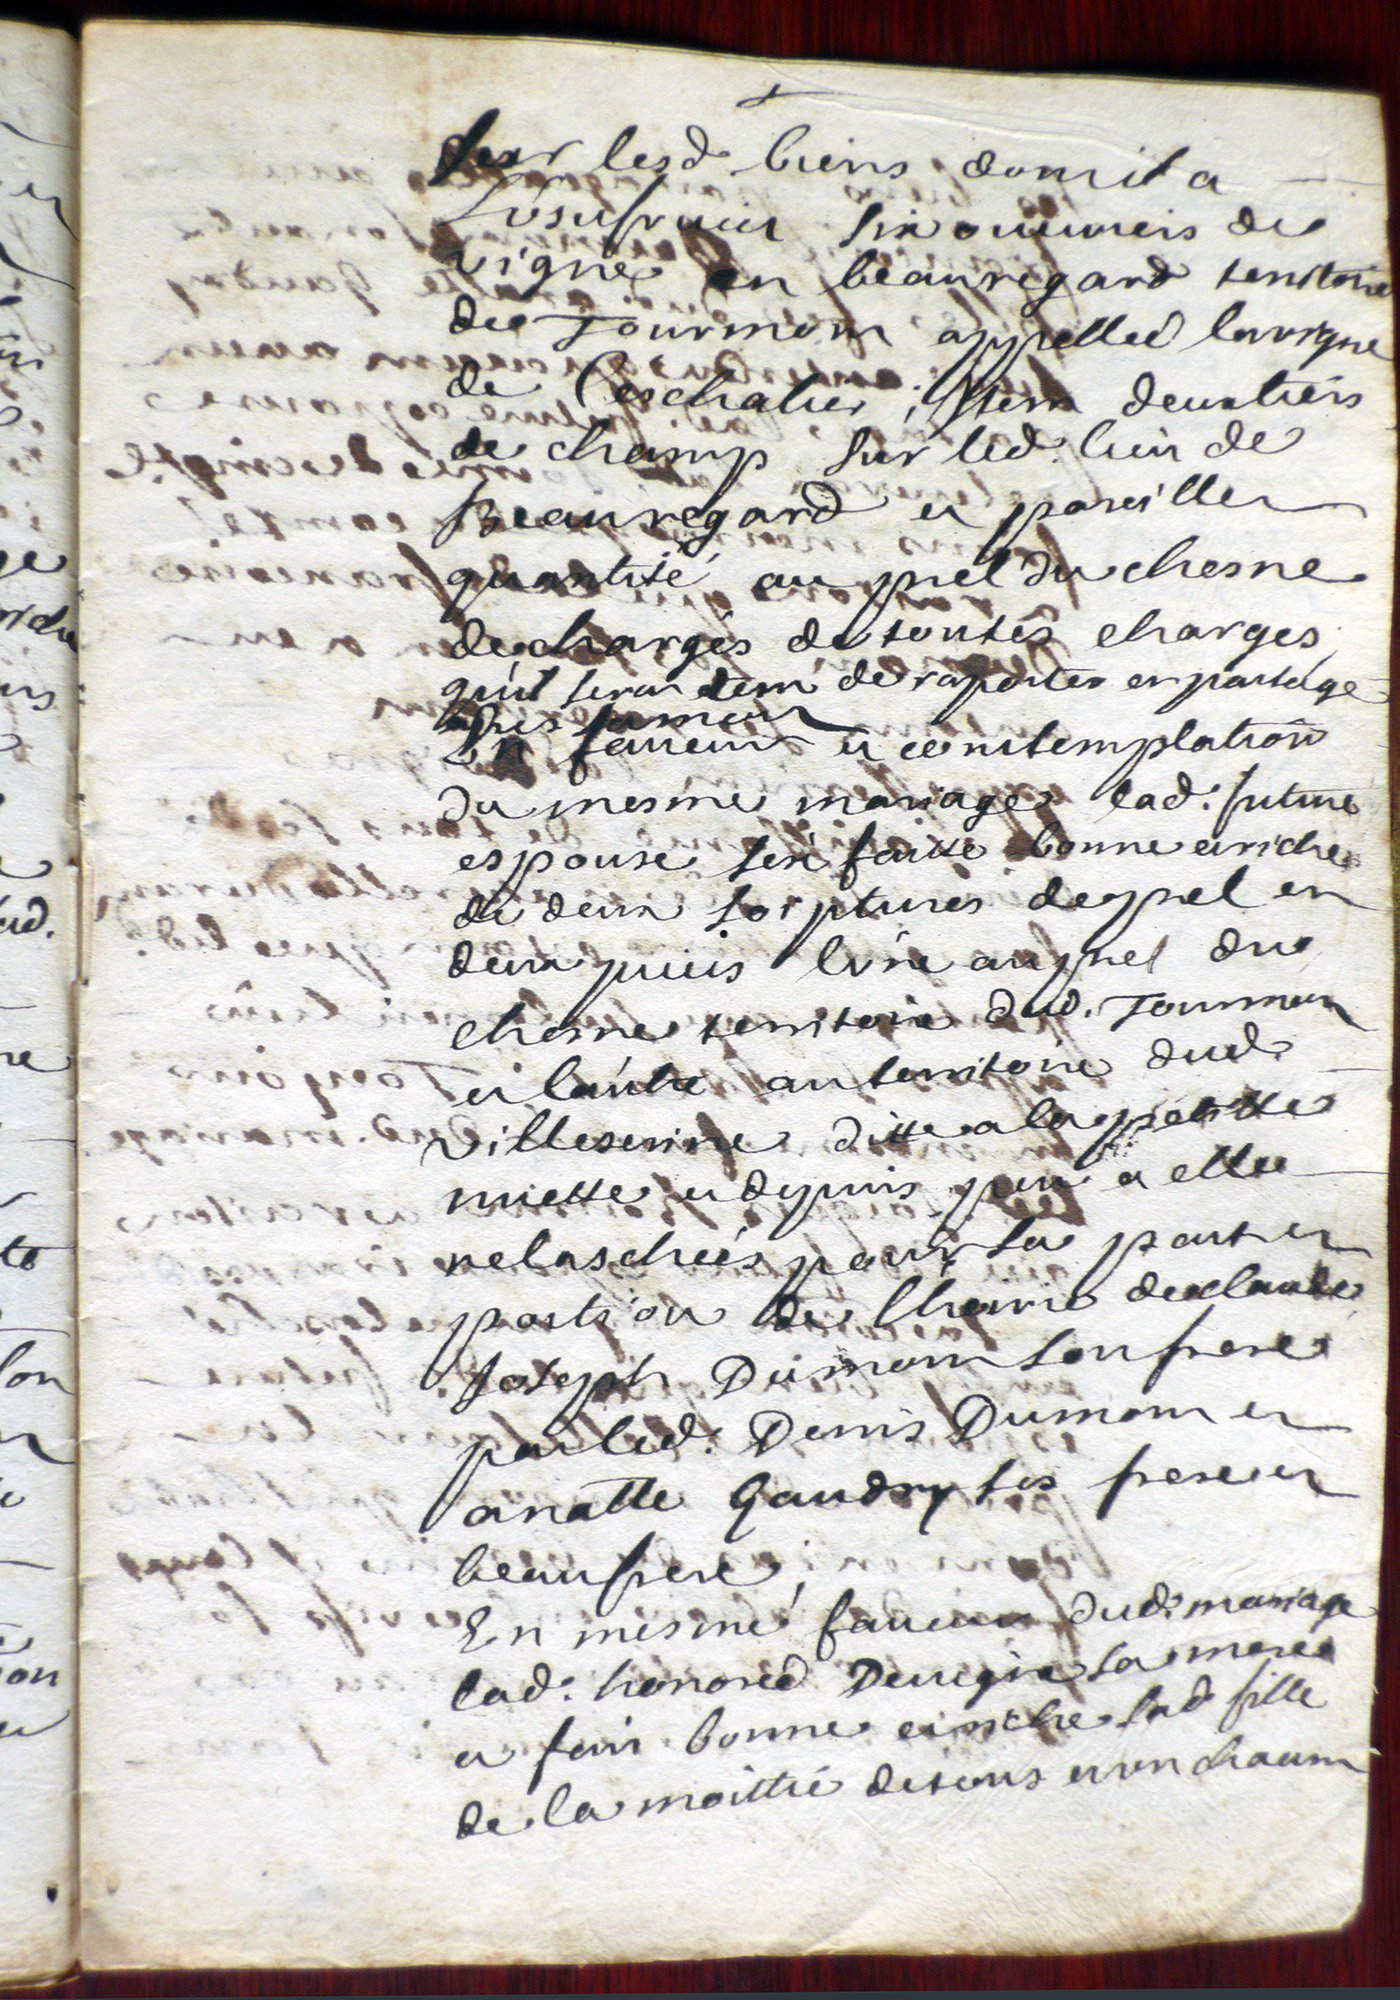 sur lesd. biens dom il a
L'usufruict six ouurees de
vigne en beauregard territoire
de Tourmom appellee la vigne
de Leschalier, Item deux tiers
de champ sur led. lieu de
Beauregard et pareille
quantité au prel du chesne
dechargés de toutes charges
quil sera tem de raporter en partage
En faueur et contemplation
du mesme mariage lad. future
espouse sest faitte bonne et riche
de deux soyptures de prel en
deux pieces lune au prel du
chesne territoire dud. Tourmom
et lautre au territoire dud.
villeserine ditte a la petitte
miette et depuis peu a elle
relaschées pour sa part et
portion de lhoirie de claude
Joseph Dumom son frere
par led. Denis Dumom et
anatle Gaudry ses frere et
beaufrere,
En mesme faueur dud. mariage
lad. honoree sa mere
a fait bonne et riche sad fille
de la moittié de tous et un chacun